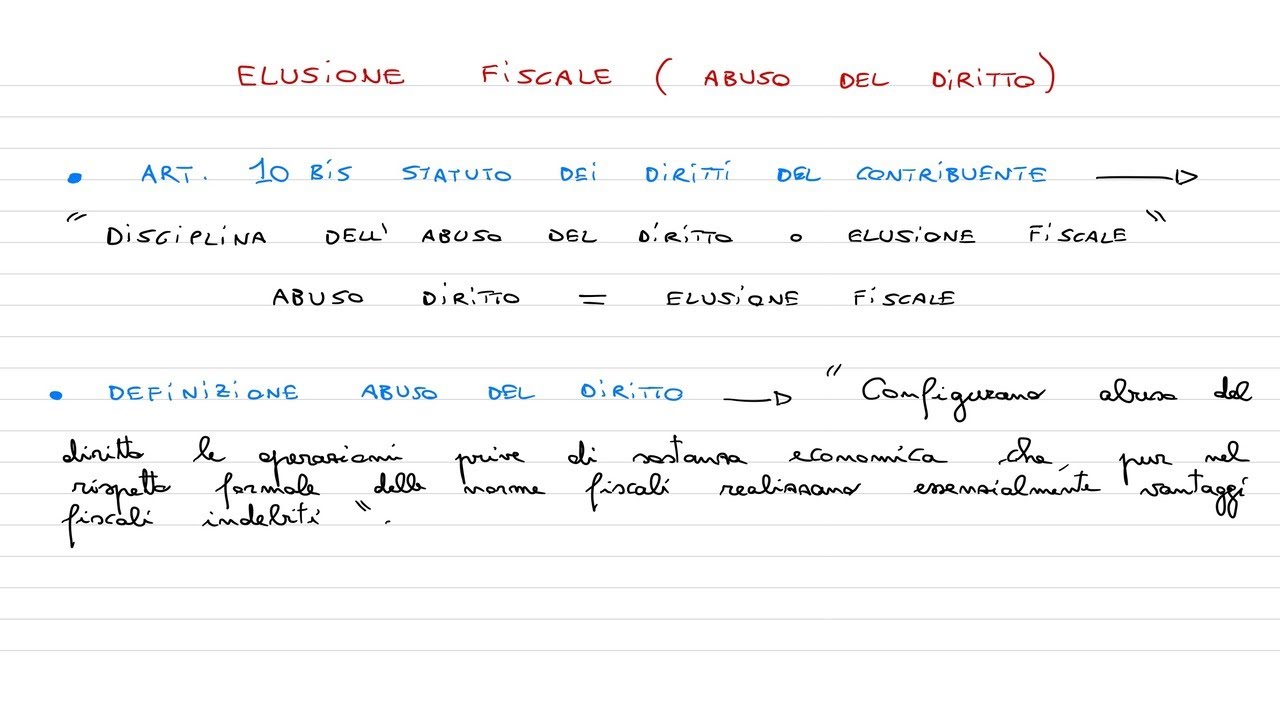 ELUSIONE FISCALE ( ABUSO DEL DIRITTO)
• ART. 10 BIS STATUTO DEI DIRITTI DEL CONTRIBUENTE →
" DISCIPLINA DELL' ABUSO DEL DIRITTO O ELUSIONE FISCALE "
ABUSO DIRITTO = ELUSIONE FISCALE
• DEFINIZIONE ABUSO DEL DIRITTO → " Configurano abuso del
diritto le operazioni prive di sostanza economica che, pur nel
rispetto formale delle norme fiscali realizzano essenzialmente vantaggi
fiscali indebiti ".